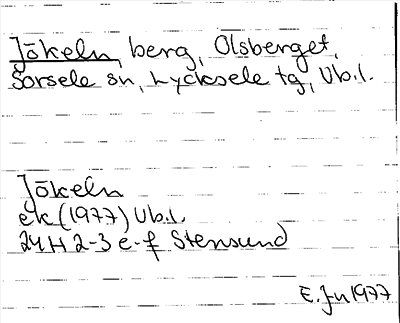 Jökeln, berg, Olsberget,
Sorsele sn, Lycksele tg, Vb.l.
Jökeln
ek (1977) Vb.l.
24H 2-3 e-f Stensund
E. Jn 1977